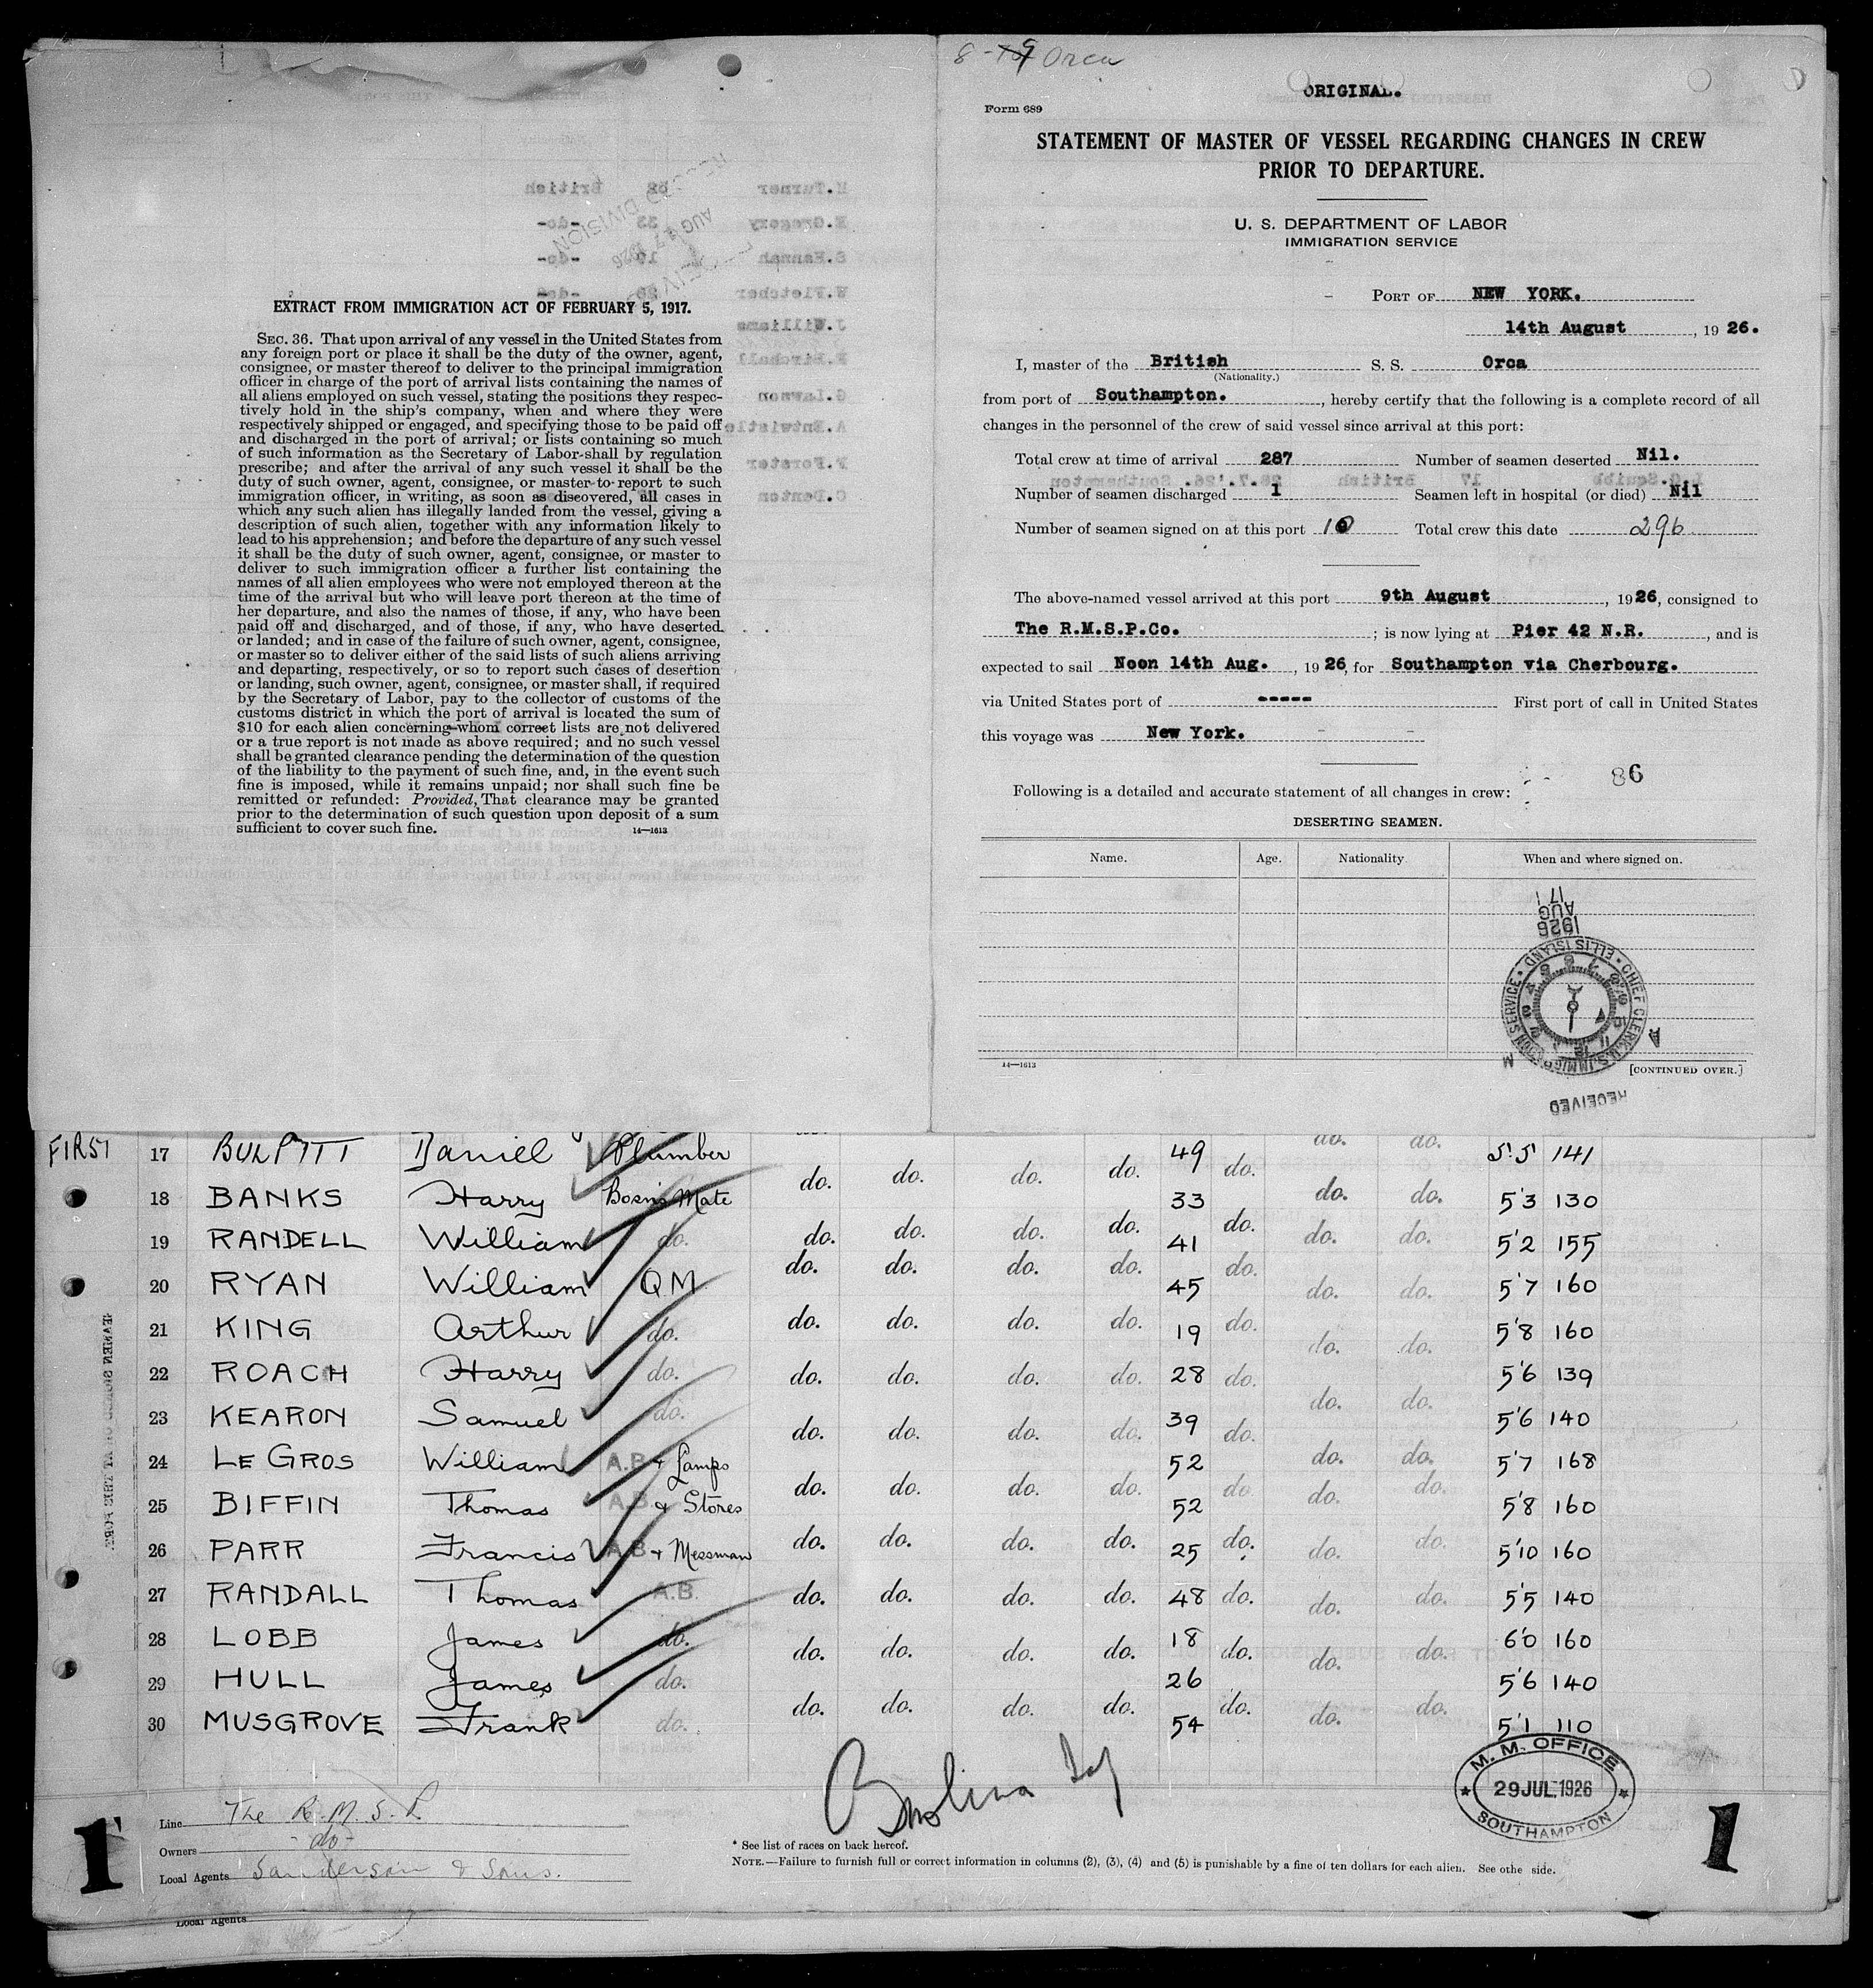 EXTRACT FROM IMMIGRATION ACT OF FEBRUARY 5, 1917.
SEC. 36. That upon arrival of any vessel in the United States from
any foreign port or place it shall be the duty of the owner, agent,
consignee, or master thereof to deliver to the principal immigration
officer in charge of the port of arrival lists containing the names of
all aliens employed on such vessel, stating the positions they respec-
tively hold in the ship's company, when and where they were
respectively shipped or engaged, and specifying those to be paid off
and discharged in the port of arrival; or lists containing so much
of such information as the Secretary of Labor shall by regulation
prescribe; and after the arrival of any such vessel it shall be the
duty of such owner, agent, consignee, or master to report to such
immigration officer, in writing, as soon as discovered, all cases in
which any such alien has illegally landed from the vessel, giving a
description of such alien, together with any information likely to
lead to his apprehension; and before the departure of any such vessel
it shall be the duty of such owner, agent, consignee, or master to
deliver to such immigration officer a further list containing the
names of all alien employees who were not employed thereon at the
time of the arrival but who will leave port thereon at the time of
her departure, and also the names of those, if any, who have been
paid off and discharged, and of those, if any, who have deserted
or landed; and in case of the failure of such owner, agent, consignee,
or master so to deliver either of the said lists of such aliens arriving
and departing, respectively, or so to report such cases of desertion
or landing, such owner, agent, consignee, or master shall, if required
by the Secretary of Labor, pay to the collector of customs of the
customs district in which the port of arrival is located the sum of
$10 for each alien concerning whom correct lists are not delivered
or a true report is not made as above required; and no such vessel
shall be granted clearance pending the determination of the question
of the liability to the payment of such fine, and, in the event such
fine is imposed, while it remains unpaid; nor shall such fine be
remitted or refunded: Provided, That clearance may be granted
prior to the determination of such question upon deposit of a sum
sufficient to cover such fine. 14—1613
Orca
ORIGINAL.
Form 689
STATEMENT OF MASTER OF VESSEL REGARDING CHANGES IN CREW
PRIOR TO DEPARTURE.
U. S. DEPARTMENT OF LABOR
IMMIGRATION SERVICE
PORT OF NEW YORK.
14th August, 1926.
I, master of the British S. S. Orca
(Nationality.)
from port of Southampton., hereby certify that the following is a complete record of all
changes in the personnel of the crew of said vessel since arrival at this port:
Total crew at time of arrival 287 Number of seamen deserted Nil.
Number of seamen discharged 1 Seamen left in hospital (or died) Nil
Number of seamen signed on at this port 10 Total crew this date 296
The above-named vessel arrived at this port 9th August, 1926, consigned to
The R.M.S.P.Co.; is now lying at Pier 42 N.R., and is
expected to sail Noon 14th Aug., 1926, for Southampton via Cherbourg.
via United States port of ----- First port of call in United States
this voyage was New York.
86
Following is a detailed and accurate statement of all changes in crew:
DESERTING SEAMEN.
Name. Age. Nationality When and where signed on.
1926 AUG 17
CHIEF CLERK, U.S. IMMIGRATION SERVICE • ELLIS ISLAND
RECEIVED
14—1613 [CONTINUED OVER.]
FIRST 17 BULPITT Daniel Plumber 49 do. do. do. 5'5 141
18 BANKS Harry Bosn's Mate do. do. do. do. 33 do. do. do. 5'3 130
19 RANDELL William do. do. do. do. do. 41 do. do. do. 5'2 155
20 RYAN William Q M do. do. do. do. 45 do. do. do. 5'7 160
21 KING Arthur do. do. do. do. do. 19 do. do. do. 5'8 160
22 ROACH Harry do. do. do. do. do. 28 do. do. do. 5'6 139
23 KEARON Samuel do. do. do. do. do. 39 do. do. do. 5'6 140
24 LE GROS William A.B + Lamps do. do. do. do. 52 do. do. do. 5'7 168
25 BIFFIN Thomas A.B. & Stores do. do. do. do. 52 do. do. do. 5'8 160
26 PARR Francis A.B + Messman do. do. do. do. 25 do. do. do. 5'10 160
27 RANDALL Thomas A.B. do. do. do. do. 48 do. do. do. 5'5 140
28 LOBB James do. do. do. do. do. 18 do. do. do. 6'0 160
29 HULL James do. do. do. do. do. 26 do. do. do. 5'6 140
30 MUSGROVE Frank do. 54 do. 5'1 110
M. M. OFFICE
29 JUL 1926
SOUTHAMPTON
1 1
Line The R. M. S. P.
Owners -do-
Local Agents Sanderson & Sons.
* See list of races on back hereof.
NOTE.—Failure to furnish full or correct information in columns (2), (3), (4) and (5) is punishable by a fine of ten dollars for each alien. See othe side.
Local Agents